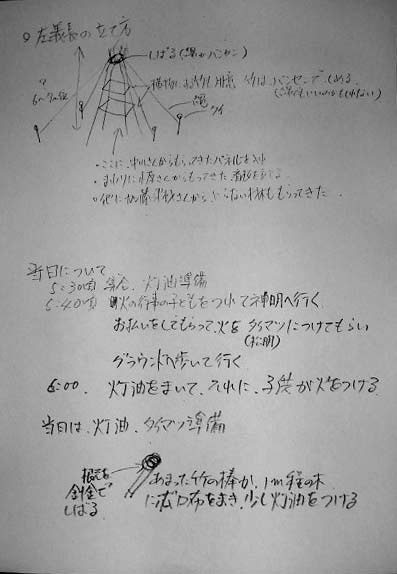 ○左義長の立て方
しばる(縄かバンセン)
竹はバンセンでしめる。
(縄でもいいのかもしれない)
6〜7m位
縄
クイ
・ここに、中川さんからもらってきたパネルを
・まわりに さんからもらってきた
・他に加藤 さんから、いらない材木ももらってきた。
当日について
5:30頃 集合、灯油準備
5:40頃 火の行事の子どもをつれて神明へ行く
お払いをしてもらって、火をタイマツにつけてもらい
(松明)
グラウンドへ歩いて行く
6:00. 灯油をまいて、それに、子供が火をつける
当日は、灯油、タイマツ準備
針金で
しばる
あまった竹の棒か、1m程の木
にボロ布をまき、少し灯油をつける